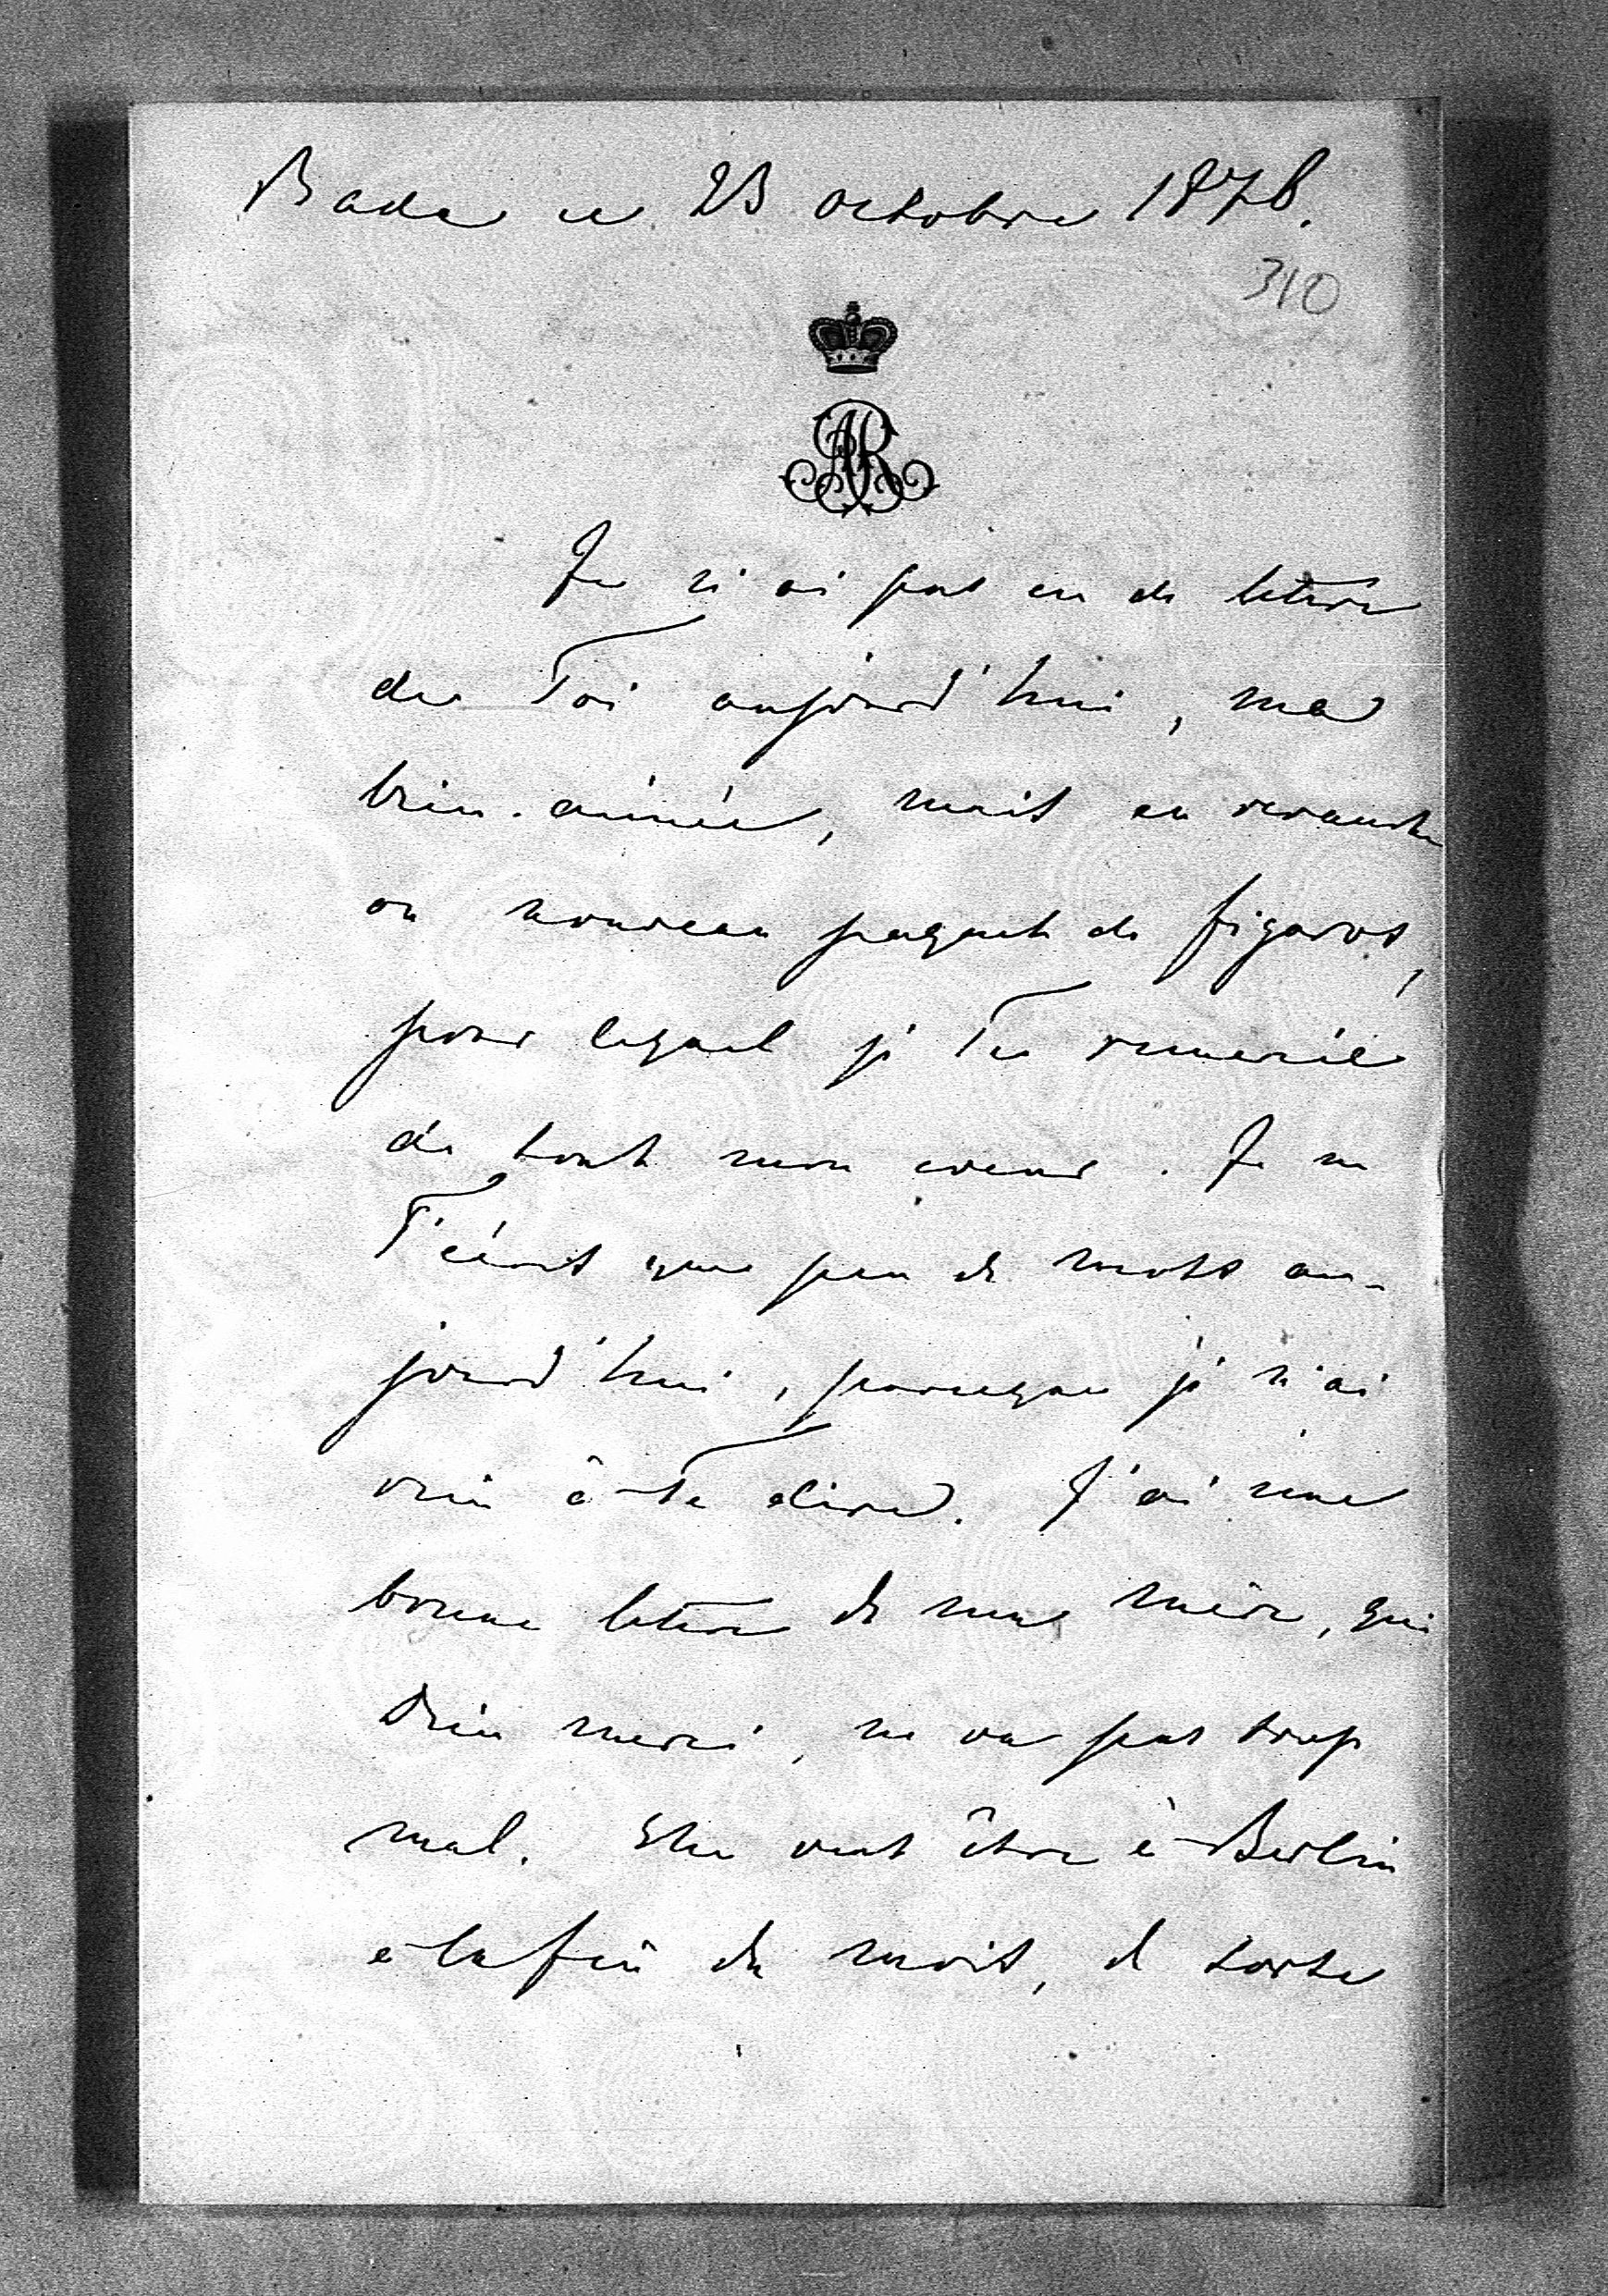 Bade ce 23 octobre 1878.
310
AR
Je n'ai pas eu de lettre
de Toi aujourd'hui, ma
bien-aimée, mais en revanche
un nouveau paquet de figaros,
pour lequel je Te remercie
de tout mon coeur. Je ne
T'écris que peu de mots au-
jourd'hui, parceque je n'ai
rien à Te dire. J'ai une
bonne lettre de ma mère, qui
Dieu merci, ne va pas trop
mal. Elle veut être à Berlin
à la fin du mois, de sorte